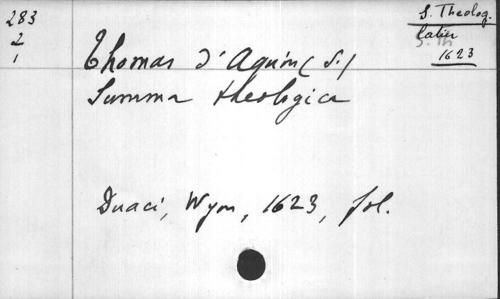 283
2
1
S. Theolog.
latin
S. Th
1623
Thomas d'Aquin (S.)
Summa theologica
Duaci, Wyon, 1623, fol.